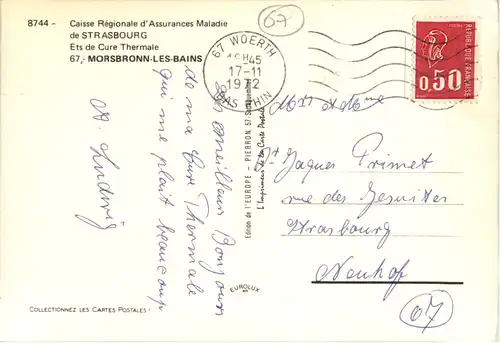 8744 - Caisse Régionale d'Assurances Maladie
de STRASBOURG
Ets de Cure Thermale
67,- MORSBRONN-LES-BAINS
67
67 WOERTH
18H45
17-11
1972
BAS RHIN
REPUBLIQUE FRANCAISE
POSTES
0,50
Les meilleurs Bonjours
de ma Cure Thermale
qui me plait beaucoup
A. Ludwig
Edition de l'EUROPE - PIERRON, 67-Sarreguemines
L'Imprimeur de la Carte Postale
EUROLUX
Mrs et Mme
Dr Jaques Primet
rue des Jesuites
Strasbourg
Neuhof
67
COLLECTIONNEZ LES CARTES POSTALES !